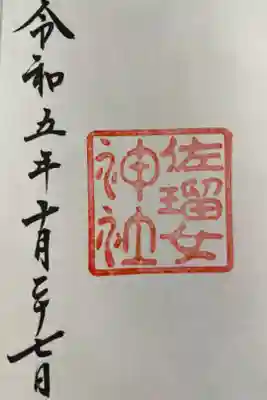 佐瑠女
神社
令和五年十月二十七日